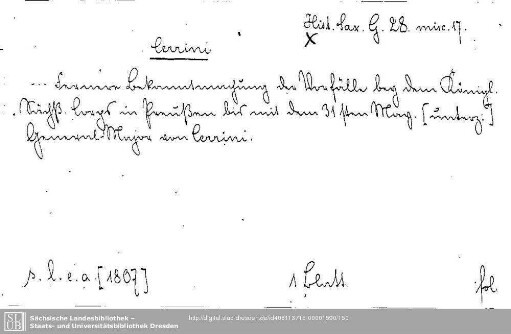 Hist. Sax. G. 28. misc. 17.
X
Cerrini
... Fernere Bekanntmachung der Vorfälle bey dem Königl.
Sächß. Corps in Preußen bis mit dem 31sten May. [unterz.:]
General-Major von Cerrini.
s. l. e. a. [1807]
1 Blatt
fol.
SLUB
Sächsische Landesbibliothek –
Staats- und Universitätsbibliothek Dresden